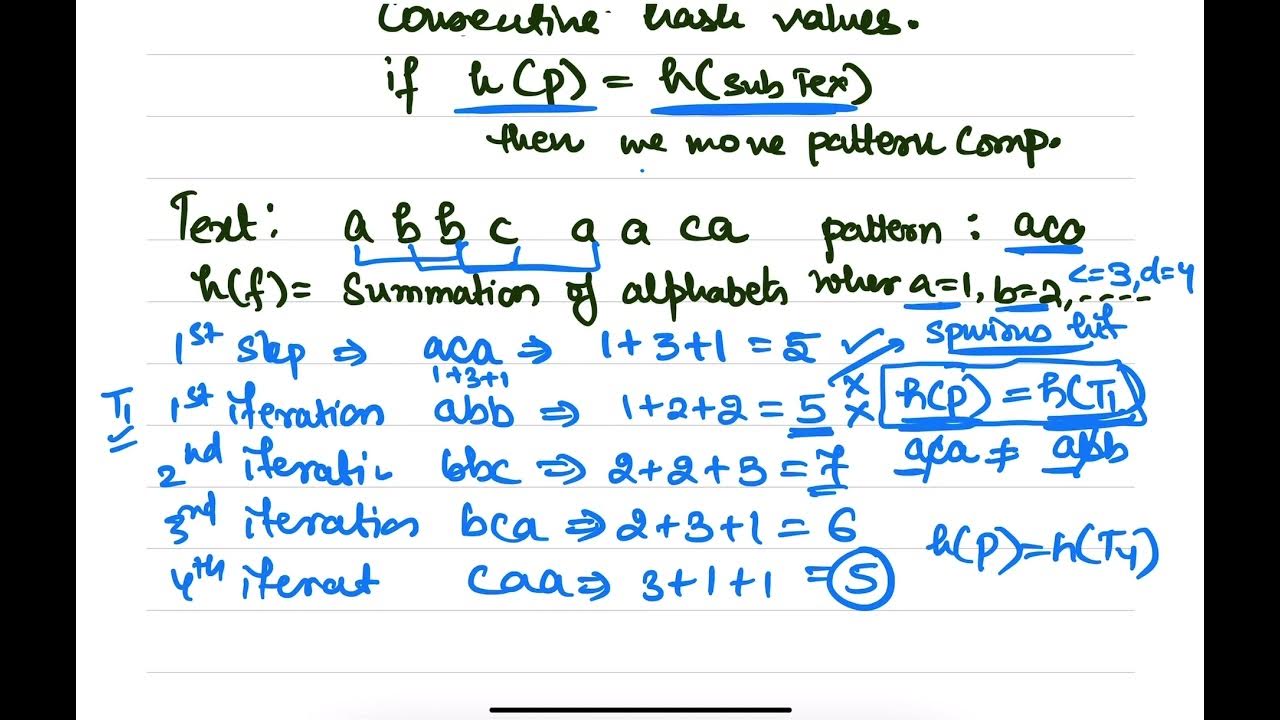 Consecutive hash values.
if h(p) = h(subTex)
then we move pattern comp.
Text: a b b c a a c a pattern : aca
h(f) = Summation of alphabets where a=1, b=2, ----- c=3, d=4
1st step ⇒ aca ⇒ 1+3+1 = 5 ✓ spurious hit
1+3+1
T1 1st iteration abb ⇒ 1+2+2 = 5 ×× h(p) = h(T1)
2nd iterati. bbc ⇒ 2+2+3 = 7 aca ≠ abb
3nd iteration bca ⇒ 2+3+1 = 6
h(p)=h(T4)
4th iterat caa ⇒ 3+1+1 = 5